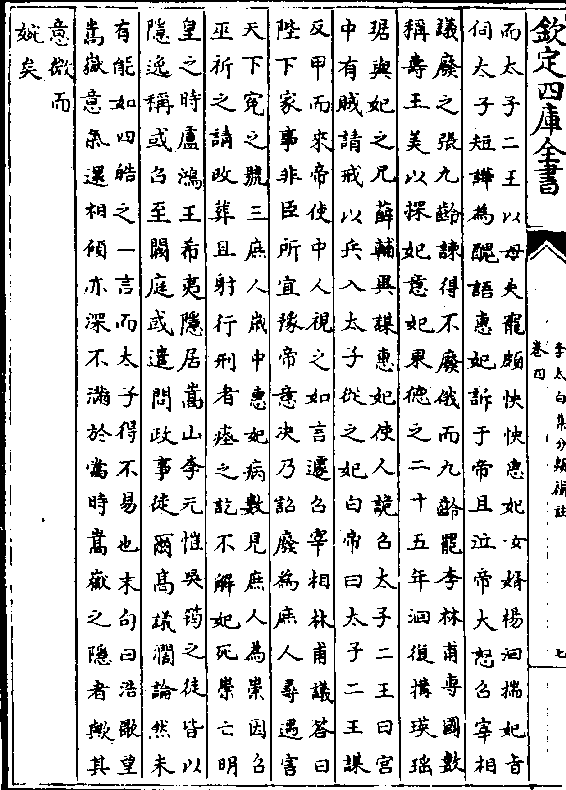 欽定四庫全書
李太白集分類補註
卷四
七
而太子二王以母失寵頗怏怏惠妃女婿楊洄揣妃旨
伺太子短譁為醜語惠妃訴于帝且泣帝大怒召宰相
議廢之張九齡諫得不廢俄而九齡罷李林甫專國數
稱壽王美以探妃意妃果德之二十五年洄復搆瑛瑶
琚與妃之兄薛輔異謀惠妃使人詭召太子二王曰宮
中有賊請戒以兵入太子從之妃白帝曰太子二王謀
反甲而來帝使中人視之如言遽召宰相林甫議答曰
陛下家事非臣所宜豫帝意决乃詔廢為庶人尋遇害
天下寃之號三庶人嵗中惠妃病數見庶人為祟因召
巫祈之請改葬且射行刑者瘞之訖不解妃死祟亡明
皇之時盧鴻王希夷隱居嵩山李元愷吳筠之徒皆以
隱逸稱或召至闕庭或遣問政事徒爾高議濶論然未
有能如四皓之一言而太子得不易也末句曰浩歌望
嵩嶽意氣還相傾亦深不滿於當時嵩嶽之隱者歟其
意微而
婉矣